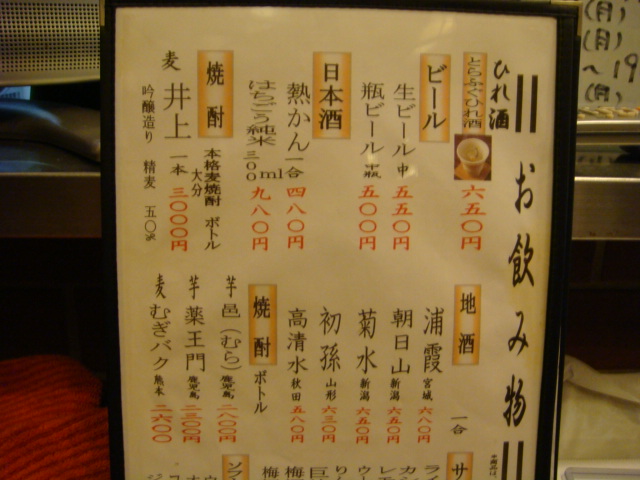 お飲み物
ひれ酒
とらふぐひれ酒
六五〇円
ビール
生ビール 中 五五〇円
瓶ビール 中瓶 五〇〇円
日本酒
熱かん 一合 四八〇円
はちごう純米 三〇〇ml 九八〇円
焼酎
本格麦焼酎 ボトル
大分
麦 井上 一本 三〇〇〇円
吟醸造り 精麦 五〇%
地酒 一合
浦霞 宮城 六八〇円
朝日山 新潟 五五〇円
菊水 新潟 六五〇円
初孫 山形 六三〇円
高清水 秋田 五八〇円
焼酎 ボトル
芋 邑(むら) 鹿児島 二八〇〇円
芋 薬王門 鹿児島 二三〇〇円
麦 むぎバク 熊本 二六〇〇
(月)
(月)
～19
(月)